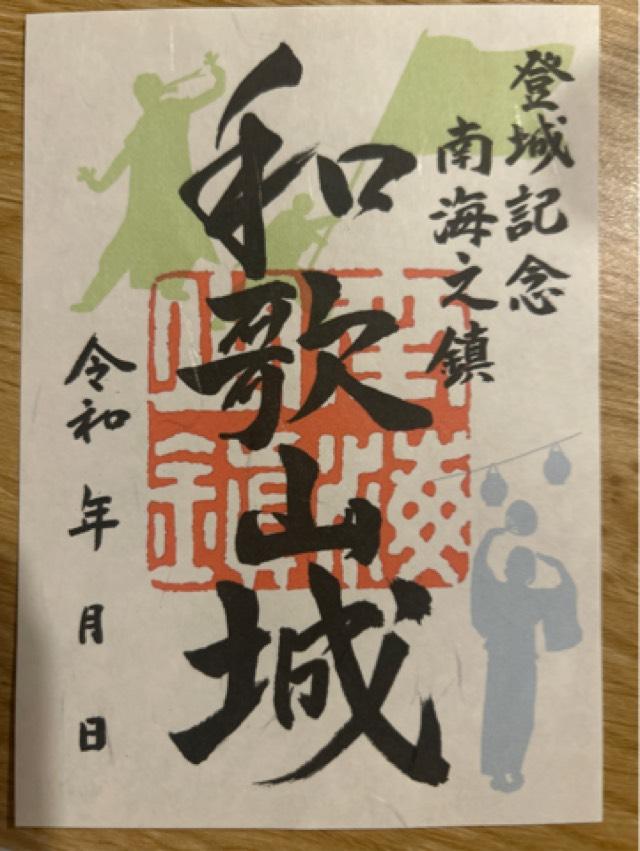 登城記念
南海之鎮
和歌山城
南海之鎮
令和 年 月 日